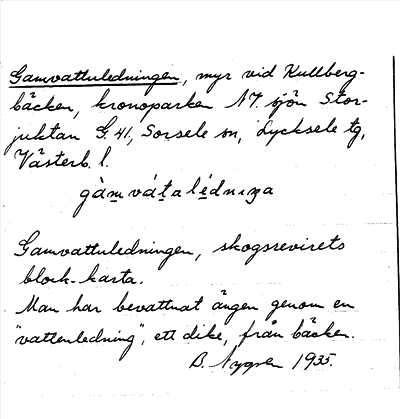 Gamvattuledningen, myr vid Kullberg-
bäcken, kronoparken N7. sjön Stor-
juktan G. 41, Sorsele sn, Lycksele tg,
Västerb. l.
gàm̠ vát̠alédnıŋa
Gamvattuledningen, skogsrevirets
block-karta.
Man har bevattnat ängen genom en
"vattenledning", ett dike, från bäcken.
B. Nygren 1935.